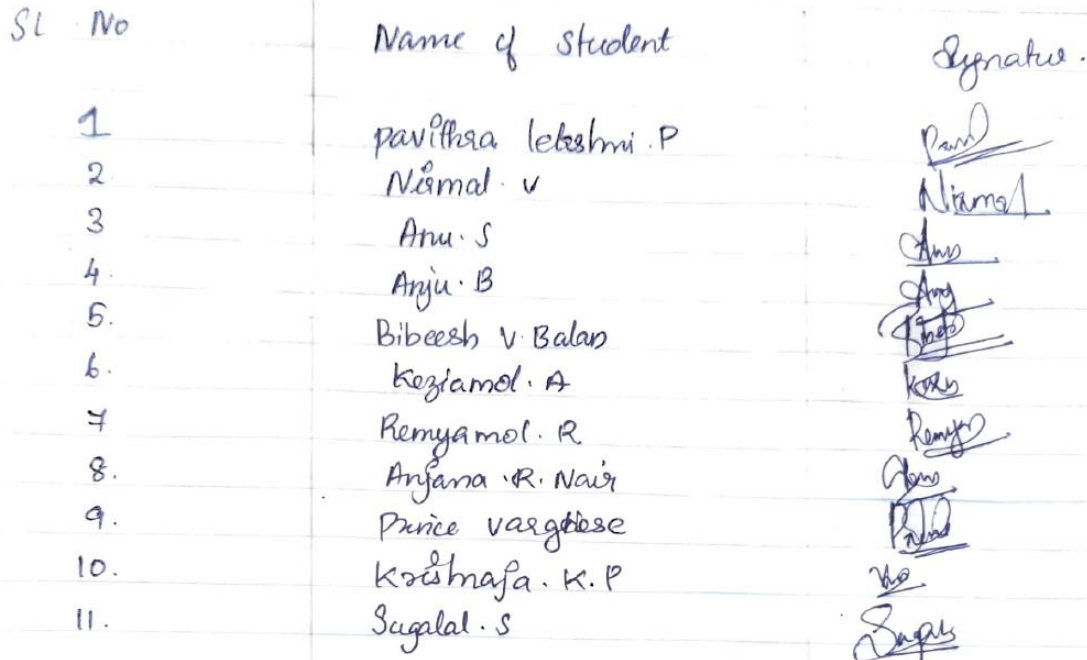 Sl No Name of student Signature.
1 Pavithra lekshmi . P
2. Nirmal . V Nirmal
3 Anu . S Anu
4. Anju . B Anj
5. Bibeesh V. Balan
6. Keziamol . A
7 Remyamol . R Remya
8. Anjana . R. Nair
9. Prince varghese
10. Krishnaja . K. P
11. Sugalal . S